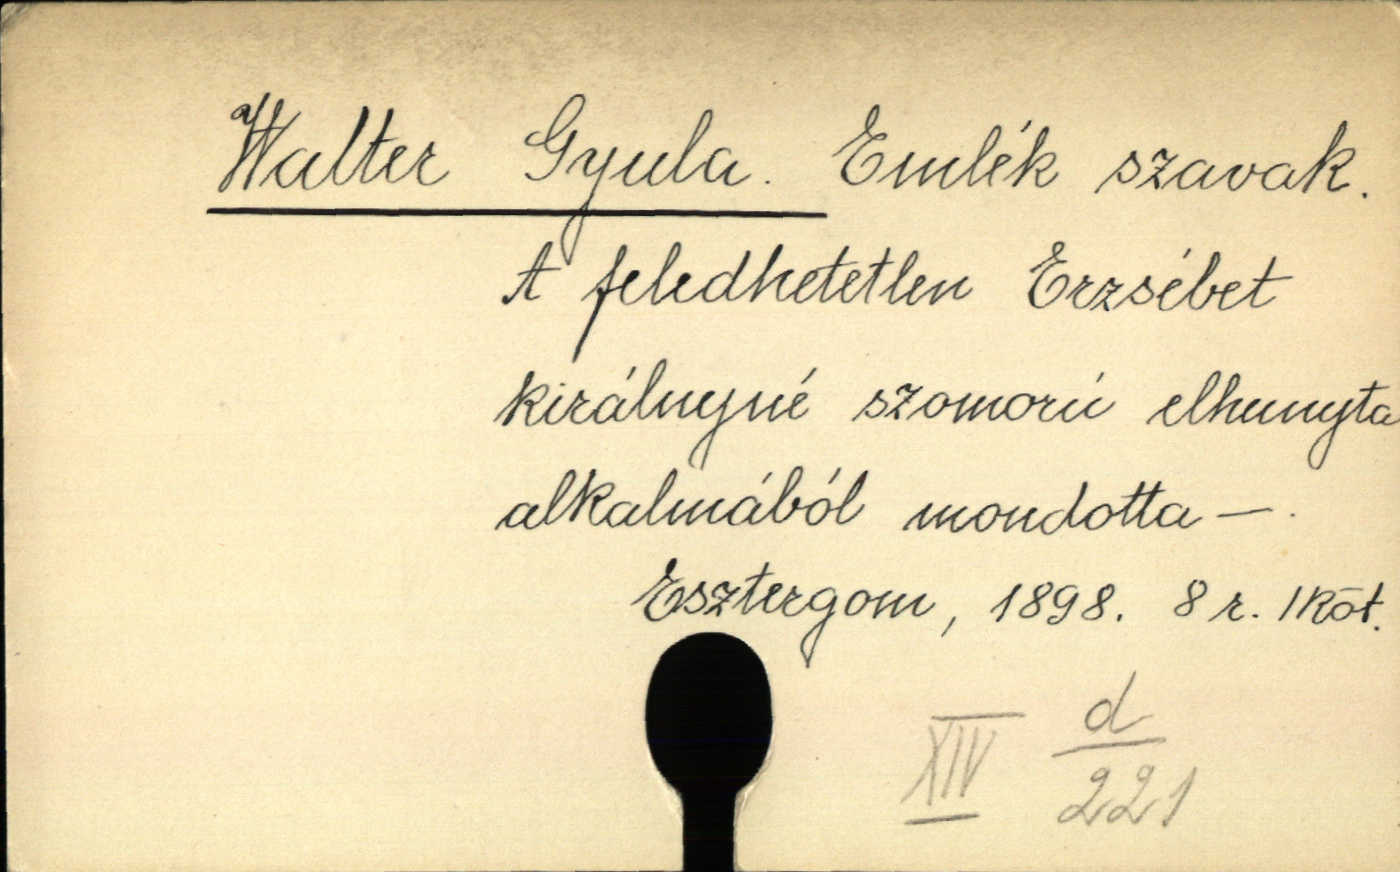 Walter Gyula. Emlék szavak.
A feledhetetlen Erzsébet
királnyné szomorú elhunyta
alkalmából mondotta —.
Esztergom, 1898. 8 r. 1 köt.
XIV d/221